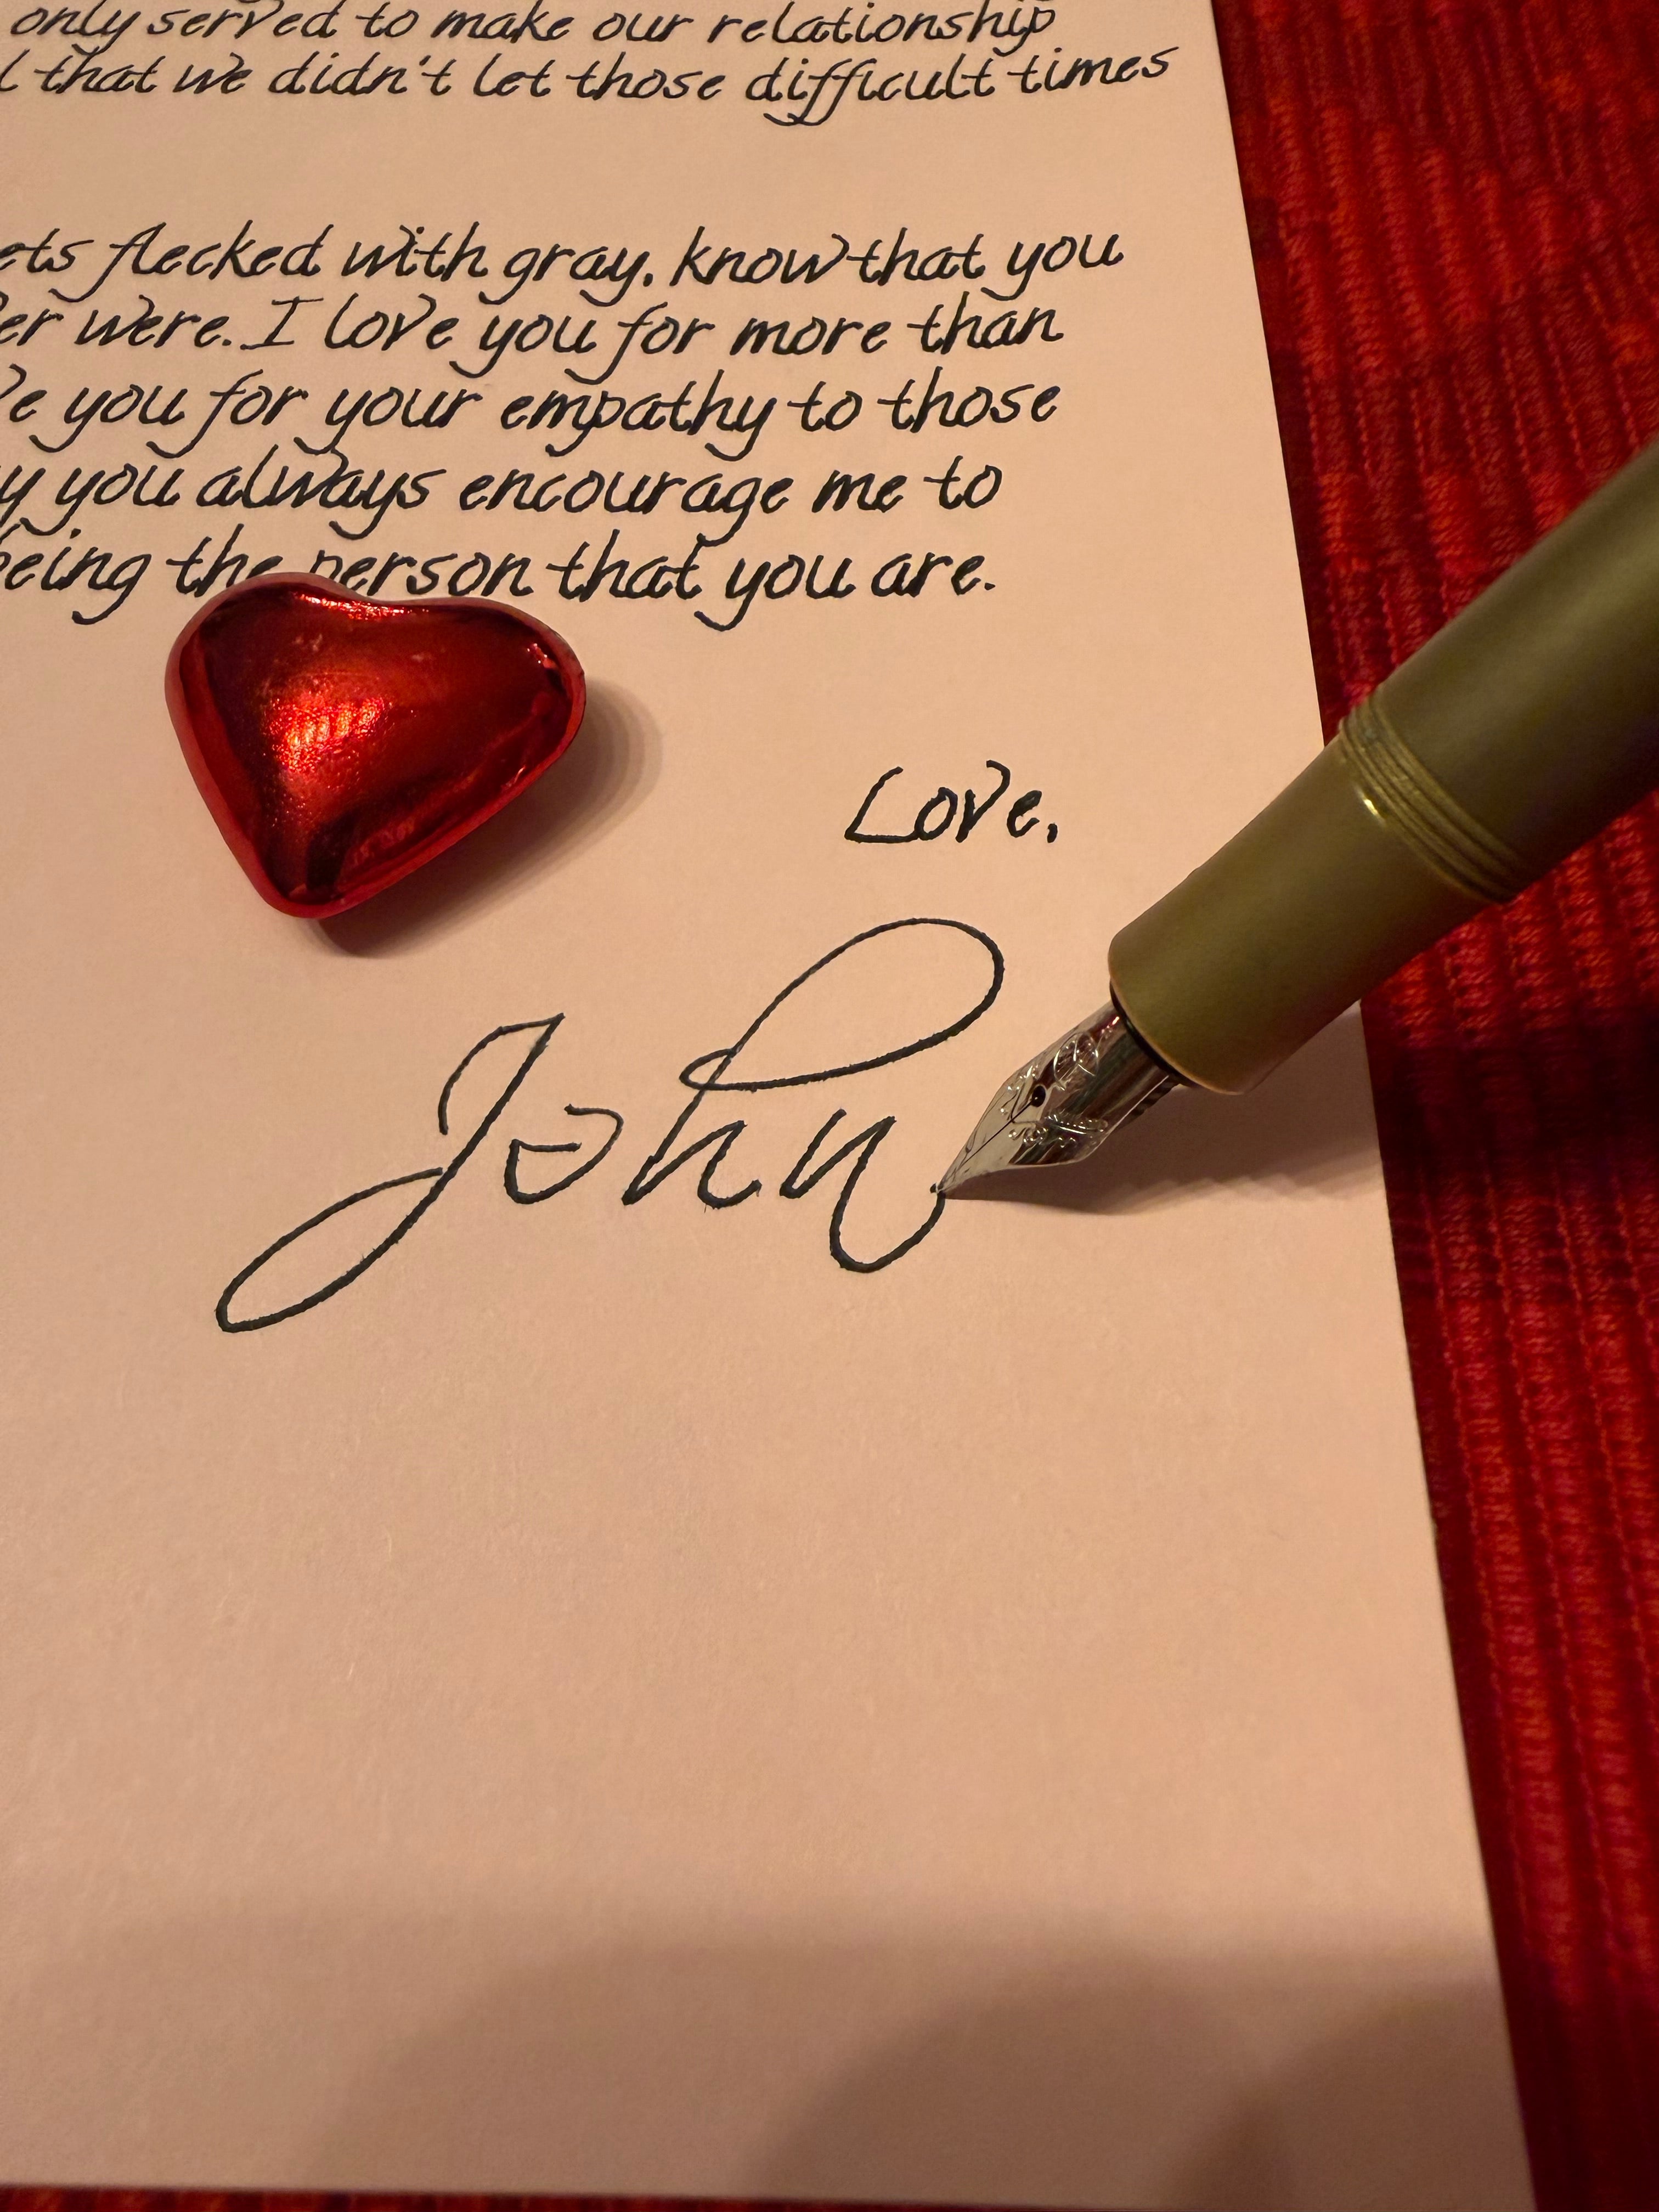 only served to make our relationship
that we didn't let those difficult times
flecked with gray, know that you
were. I love you for more than
you for your empathy to those
you always encourage me to
being the person that you are.
Love,
John